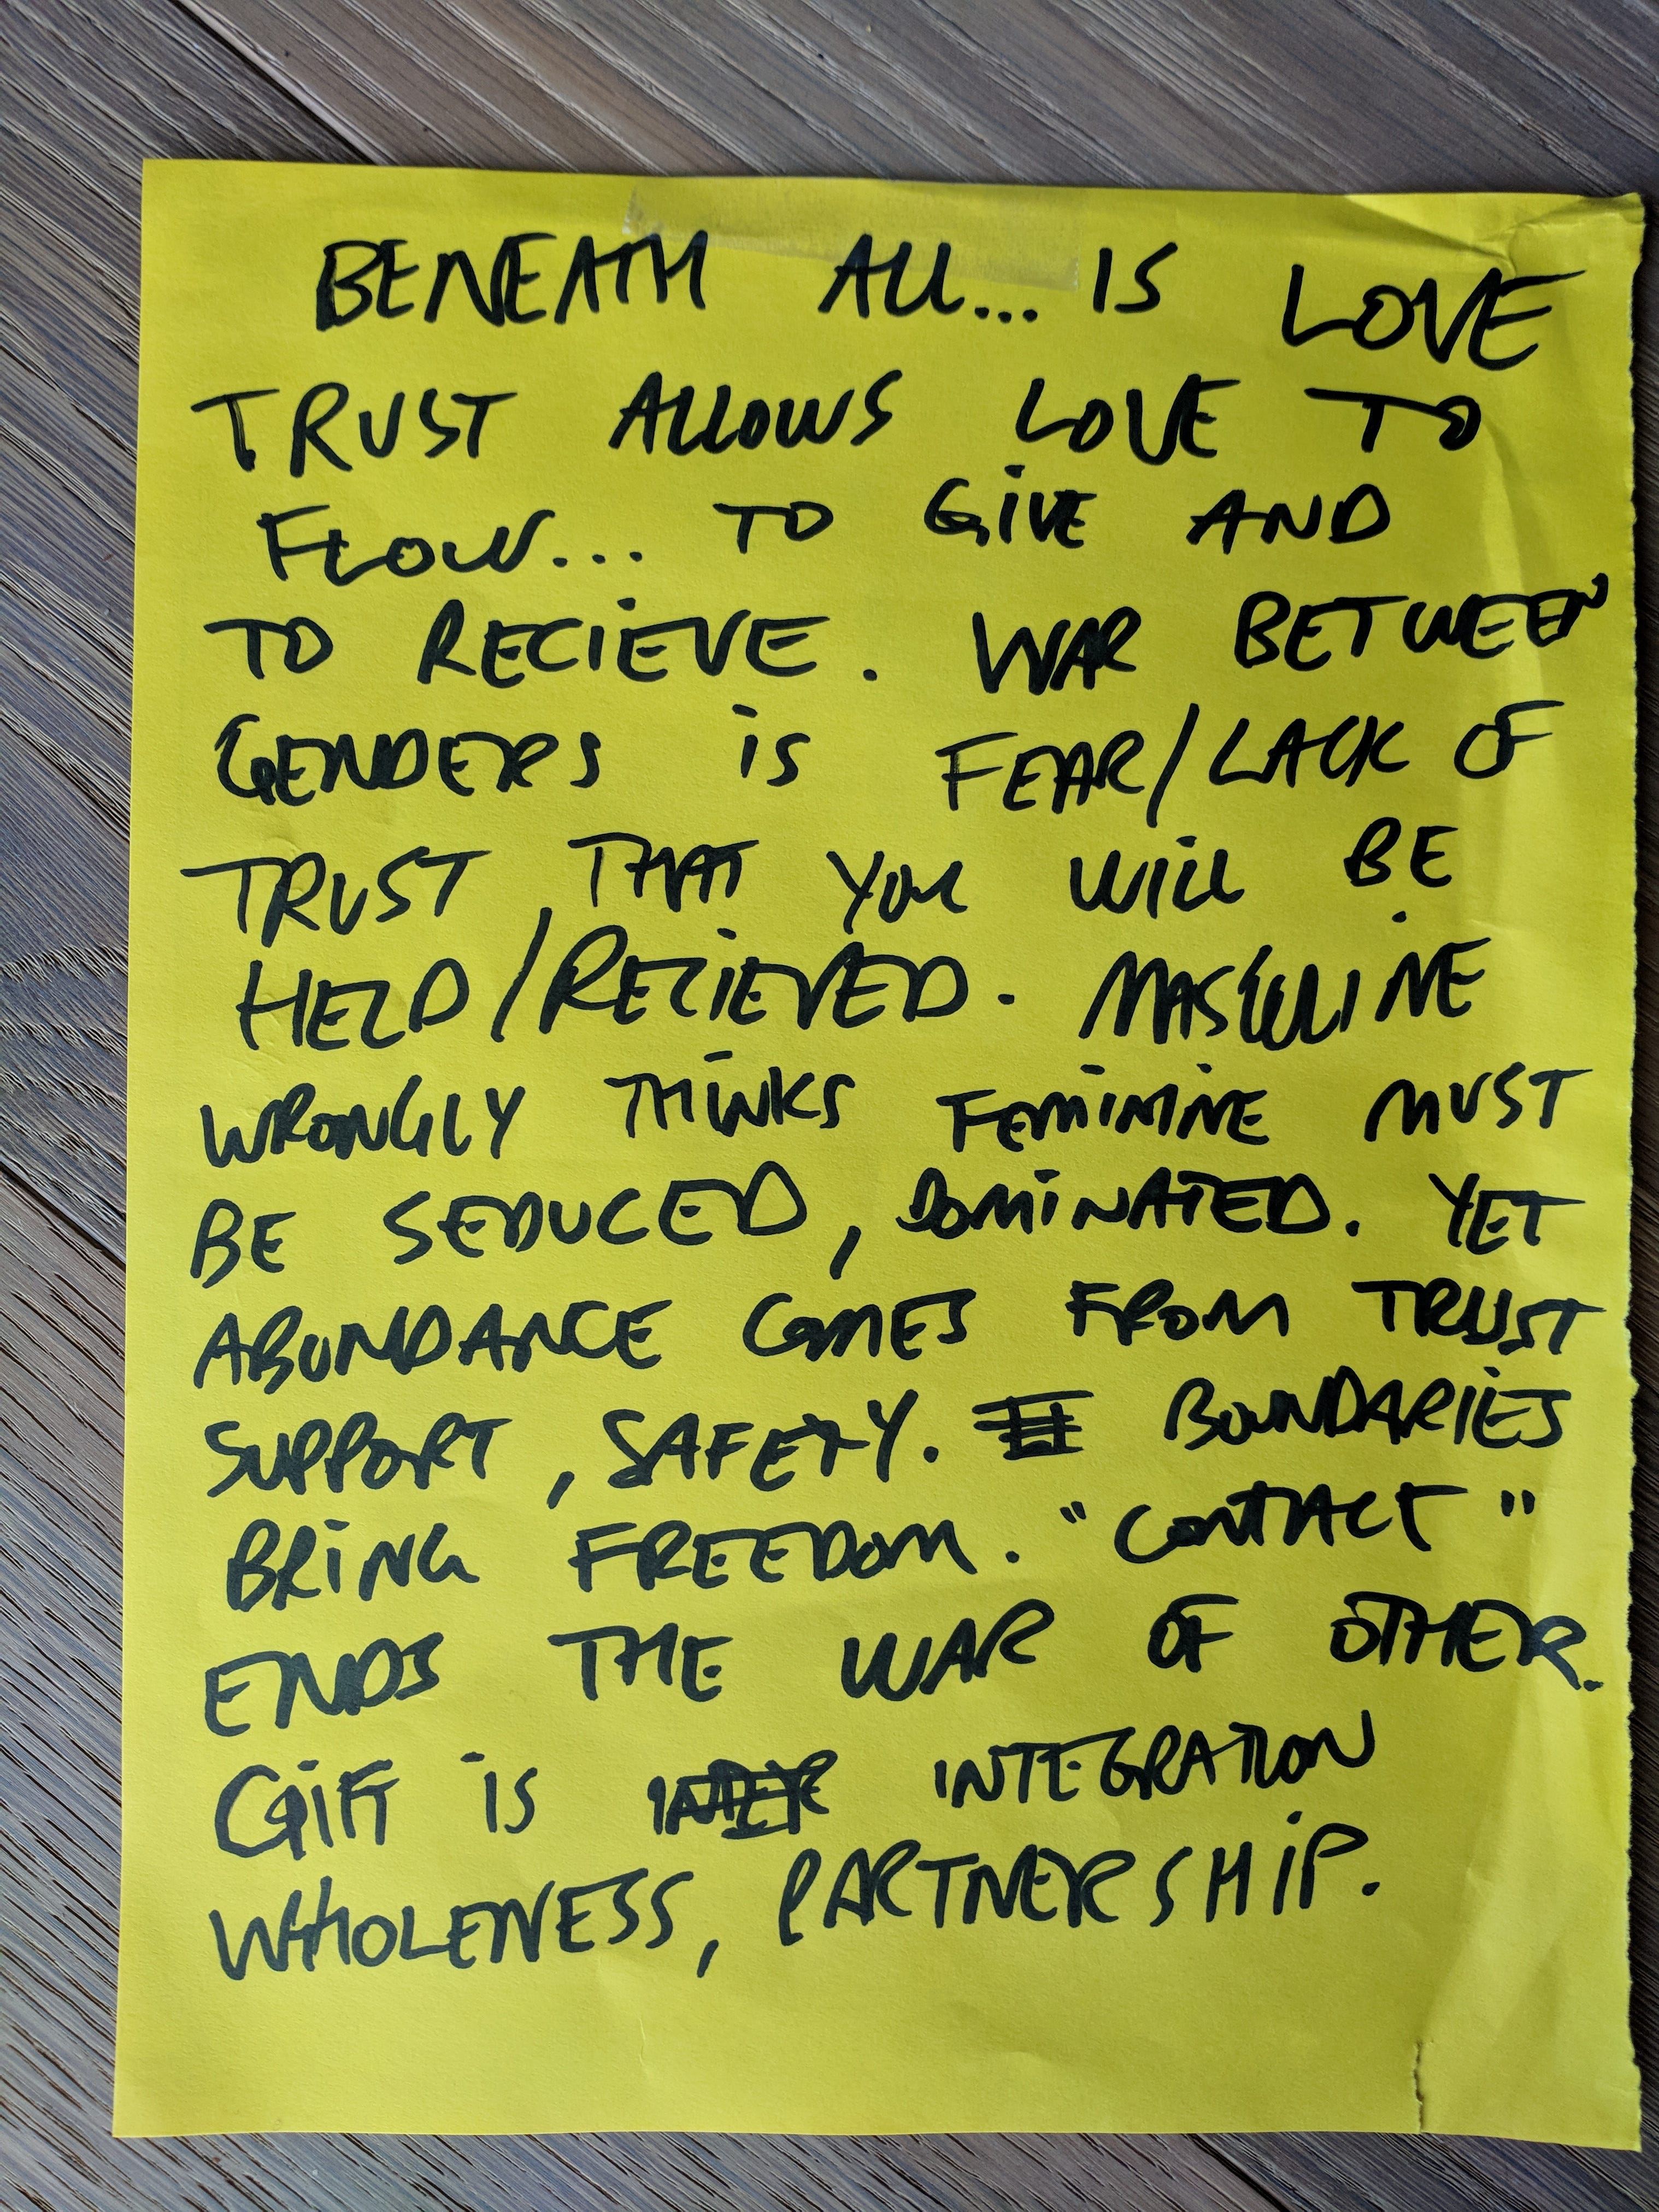 BENEATH ALL... IS LOVE
TRUST ALLOWS LOVE TO
FLOW... TO GIVE AND
TO RECIEVE. WAR BETWEEN
GENDERS IS FEAR/LACK OF
TRUST THAT YOU WILL BE
HELD/RECIEVED. MASCULINE
WRONGLY THINKS FEMININE MUST
BE SEDUCED, DOMINATED. YET
ABUNDANCE COMES FROM TRUST
SUPPORT, SAFETY. BOUNDARIES
BRING FREEDOM. "CONTACT"
ENDS THE WAR OF OTHER.
GIFT IS INTEGRATION
WHOLENESS, PARTNERSHIP.